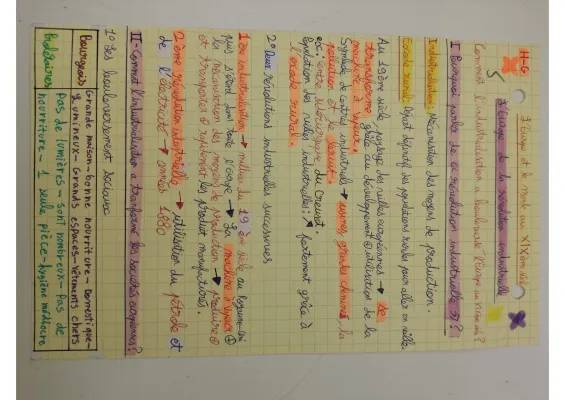 H-G
L'Europe et le monde au XIXème siècle
L'Europe de la révolution industrielle
Comment l'industrialisation a bouleversé l'Europe au XIXème siècle?
I Pourquoi parler de révolution industrielle?
Industrialisation: Mécanisation des moyens de production.
Exode rural: Départ définitif des populations rurales pour aller en ville.
Au 19ème siècle, paysage des villes européennes → se
transforme grâce au développement utilisation de la
machine à vapeur.
Symbole de centres industriels → usines, grandes cheminées, la
pollution et le bruit.
ex: centre sidérurgique du Creusot.
Population des villes industrielles: ↗ fortement grâce à
l'exode rural.
2° Deux révolutions industrielles successives
1ère industrialisation → milieu du siècle au Royaume-Uni
puis s'étend dans toute l'Europe → La machine à vapeur ⊕
la mécanisation des moyens de production → produire
et transporter rapidement les produits manufacturés.
2ème révolution industrielle → utilisation du pétrole et
de l'électricité → années 1880
II - Comment l'industrialisation a transformé les sociétés européennes?
1° Les bouleversement sociaux
Bourgeois Grande maison - bonne nourriture - Domestique -
lumineux - Grands espaces - Vêtements chers
Prolétaires Pas de lumières - sont nombreux - Pas de
nourriture - 1 seule pièce - hygiène médiocre